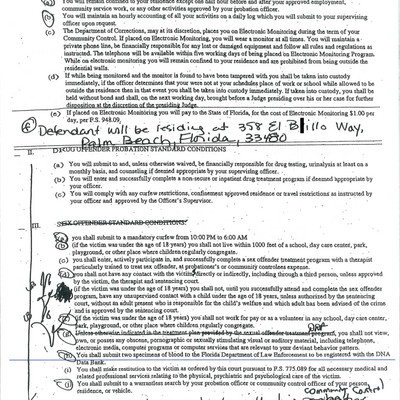 (a) You will remain confined to your residence except one half hour before and after your approved employment,
community service work, or any other activities approved by your probation officer.
(b) You will maintain an hourly accounting of all your activities on a daily log which you will submit to your supervising
officer upon request.
(c) The Department of Corrections, may at its discretion, places you on Electronic Monitoring during the term of your
Community Control. If placed on Electronic Monitoring, you will wear a monitor at all times. You will maintain a
private phone line, be financially responsible for any lost or damaged equipment and follow all rules and regulations as
instructed. The telephone will be available within five working days of being placed on Electronic Monitoring Program.
While on electronic monitoring you will remain confined to your residence and are prohibited from being outside the
residential walls.
(d) If while being monitored and the monitor is found to have been tampered with you shall be taken into custody
immediately, if the officer determines that your were not at your schedules place of work or school while allowed to be
outside the residence then in that event you shall be taken into custody immediately. If taken into custody, you shall be
held without bond and shall, on the next working day, brought before a Judge presiding over his or her case for further
disposition at the discretion of the presiding Judge.
(e) If placed on Electronic Monitoring you will pay to the State of Florida, for the cost of Electronic Monitoring $1.00 per
day, per S. 948.09,
(f) Defendant will be residing at 358 El Brillo Way,
Palm Beach, Florida, 33480
II. DRUG OFFENDER PROBATION STANDARD CONDITIONS
(a) You will submit to and, unless otherwise waived, be financially responsible for drug testing, urinalysis at least on a
monthly basis, and counseling if deemed appropriate by your supervising officer.
(b) You will enter and successfully complete a non-secure or inpatient drug treatment program if deemed appropriate by
your officer.
(c) You will comply with any curfew restrictions, confinement approved residence or travel restrictions as instructed by
your officer and approved by the Officer's Supervisor.
III. SEX OFFENDER STANDARD CONDITIONS:
you shall submit to a mandatory curfew from 10:00 PM to 6:00 AM
(if the victim was under the age of 18 years) you shall not live within 1000 feet of a school, day care center, park,
playground, or other place where children regularly congregate.
(c) you shall enter, actively participate in, and successfully complete a sex offender treatment program with a therapist
particularly trained to treat sex offender, at probationer's or community controlees expense.
(d) you shall not have any contact with the victim, directly or indirectly, including through a third person, unless approved
by the victim, the therapist and sentencing court.
(if the victim was under the age of 18 years) you shall not, until you successfully attend and complete the sex offender
program, have any unsupervised contact with a child under the age of 18 years, unless authorized by the sentencing
court, without an adult present who is responsible for the child's welfare and which adult has been advised of the crime
and is approved by the sentencing court.
(if the victim was under the age of 18 years) you shall not work for pay or as a volunteer in any school, day care center,
park, playground, or other place where children regularly congregate. DNA
(g) Unless otherwise indicated in the treatment plan provided by the sexual offender treatment program, you shall not view,
own, or posses any obscene, pornographic or sexually stimulating visual or auditory material, including telephone,
electronic media, computer programs or computer services that are relevant to your deviant behavior pattern.
(h) You shall submit two specimens of blood to the Florida Department of Law Enforcement to be registered with the DNA
Data Bank.
(i) You shall make restitution to the victim as ordered by this court pursuant to P.S. 775.089 for all necessary medical and
related professional services relating to the physical, psychiatric and psychological care of the victim.
(j) You shall submit to a warrantless search by your probation officer or community control officer of your person,
residence, or vehicle. Community Control